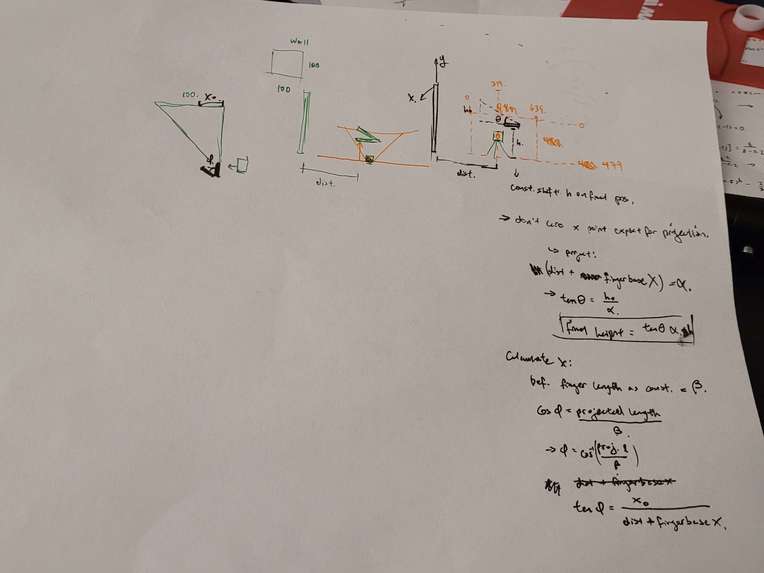 Wall
100
100
100.
x₀
dist.
y
x
dist.
319.
0
639.
0
θ
h.
479
const. shift h on final pos.
→ don't care x point except for projection.
↳ project:
(dist + fingerbase X) = α.
→ tanθ = h₀/α.
Final height = tanθ α
Calculate X:
Def. finger length as const. = β.
cos φ = projected length / β.
→ φ = cos⁻¹(proj. l / β)
dist + fingerbase x
tan φ = x₀ / dist + fingerbase X.